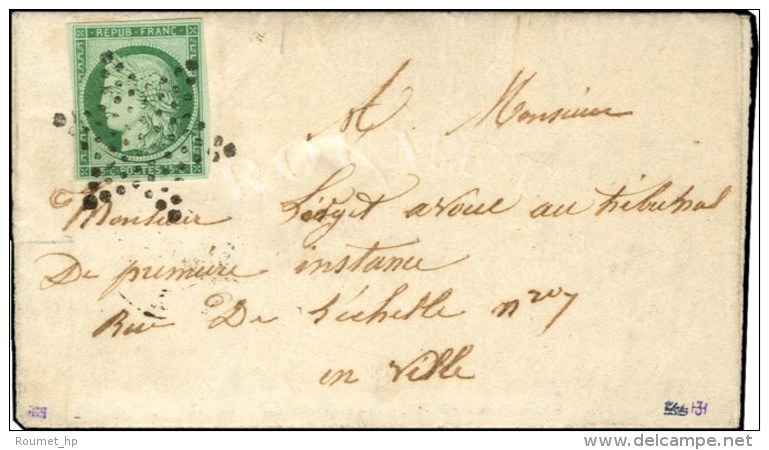 REPUB·FRANC·
5·C·POSTES·5·C
A Monsieur
Monsieur Liòget avoué au tribunal
De première instance
Rue De l'échelle n° 7
en ville
Roumet_hp
delcampe.net